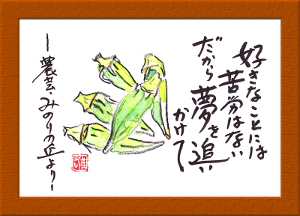 好きなことには
苦労はない
だから夢を追い
かけて
ー農芸・みのりの丘よりー